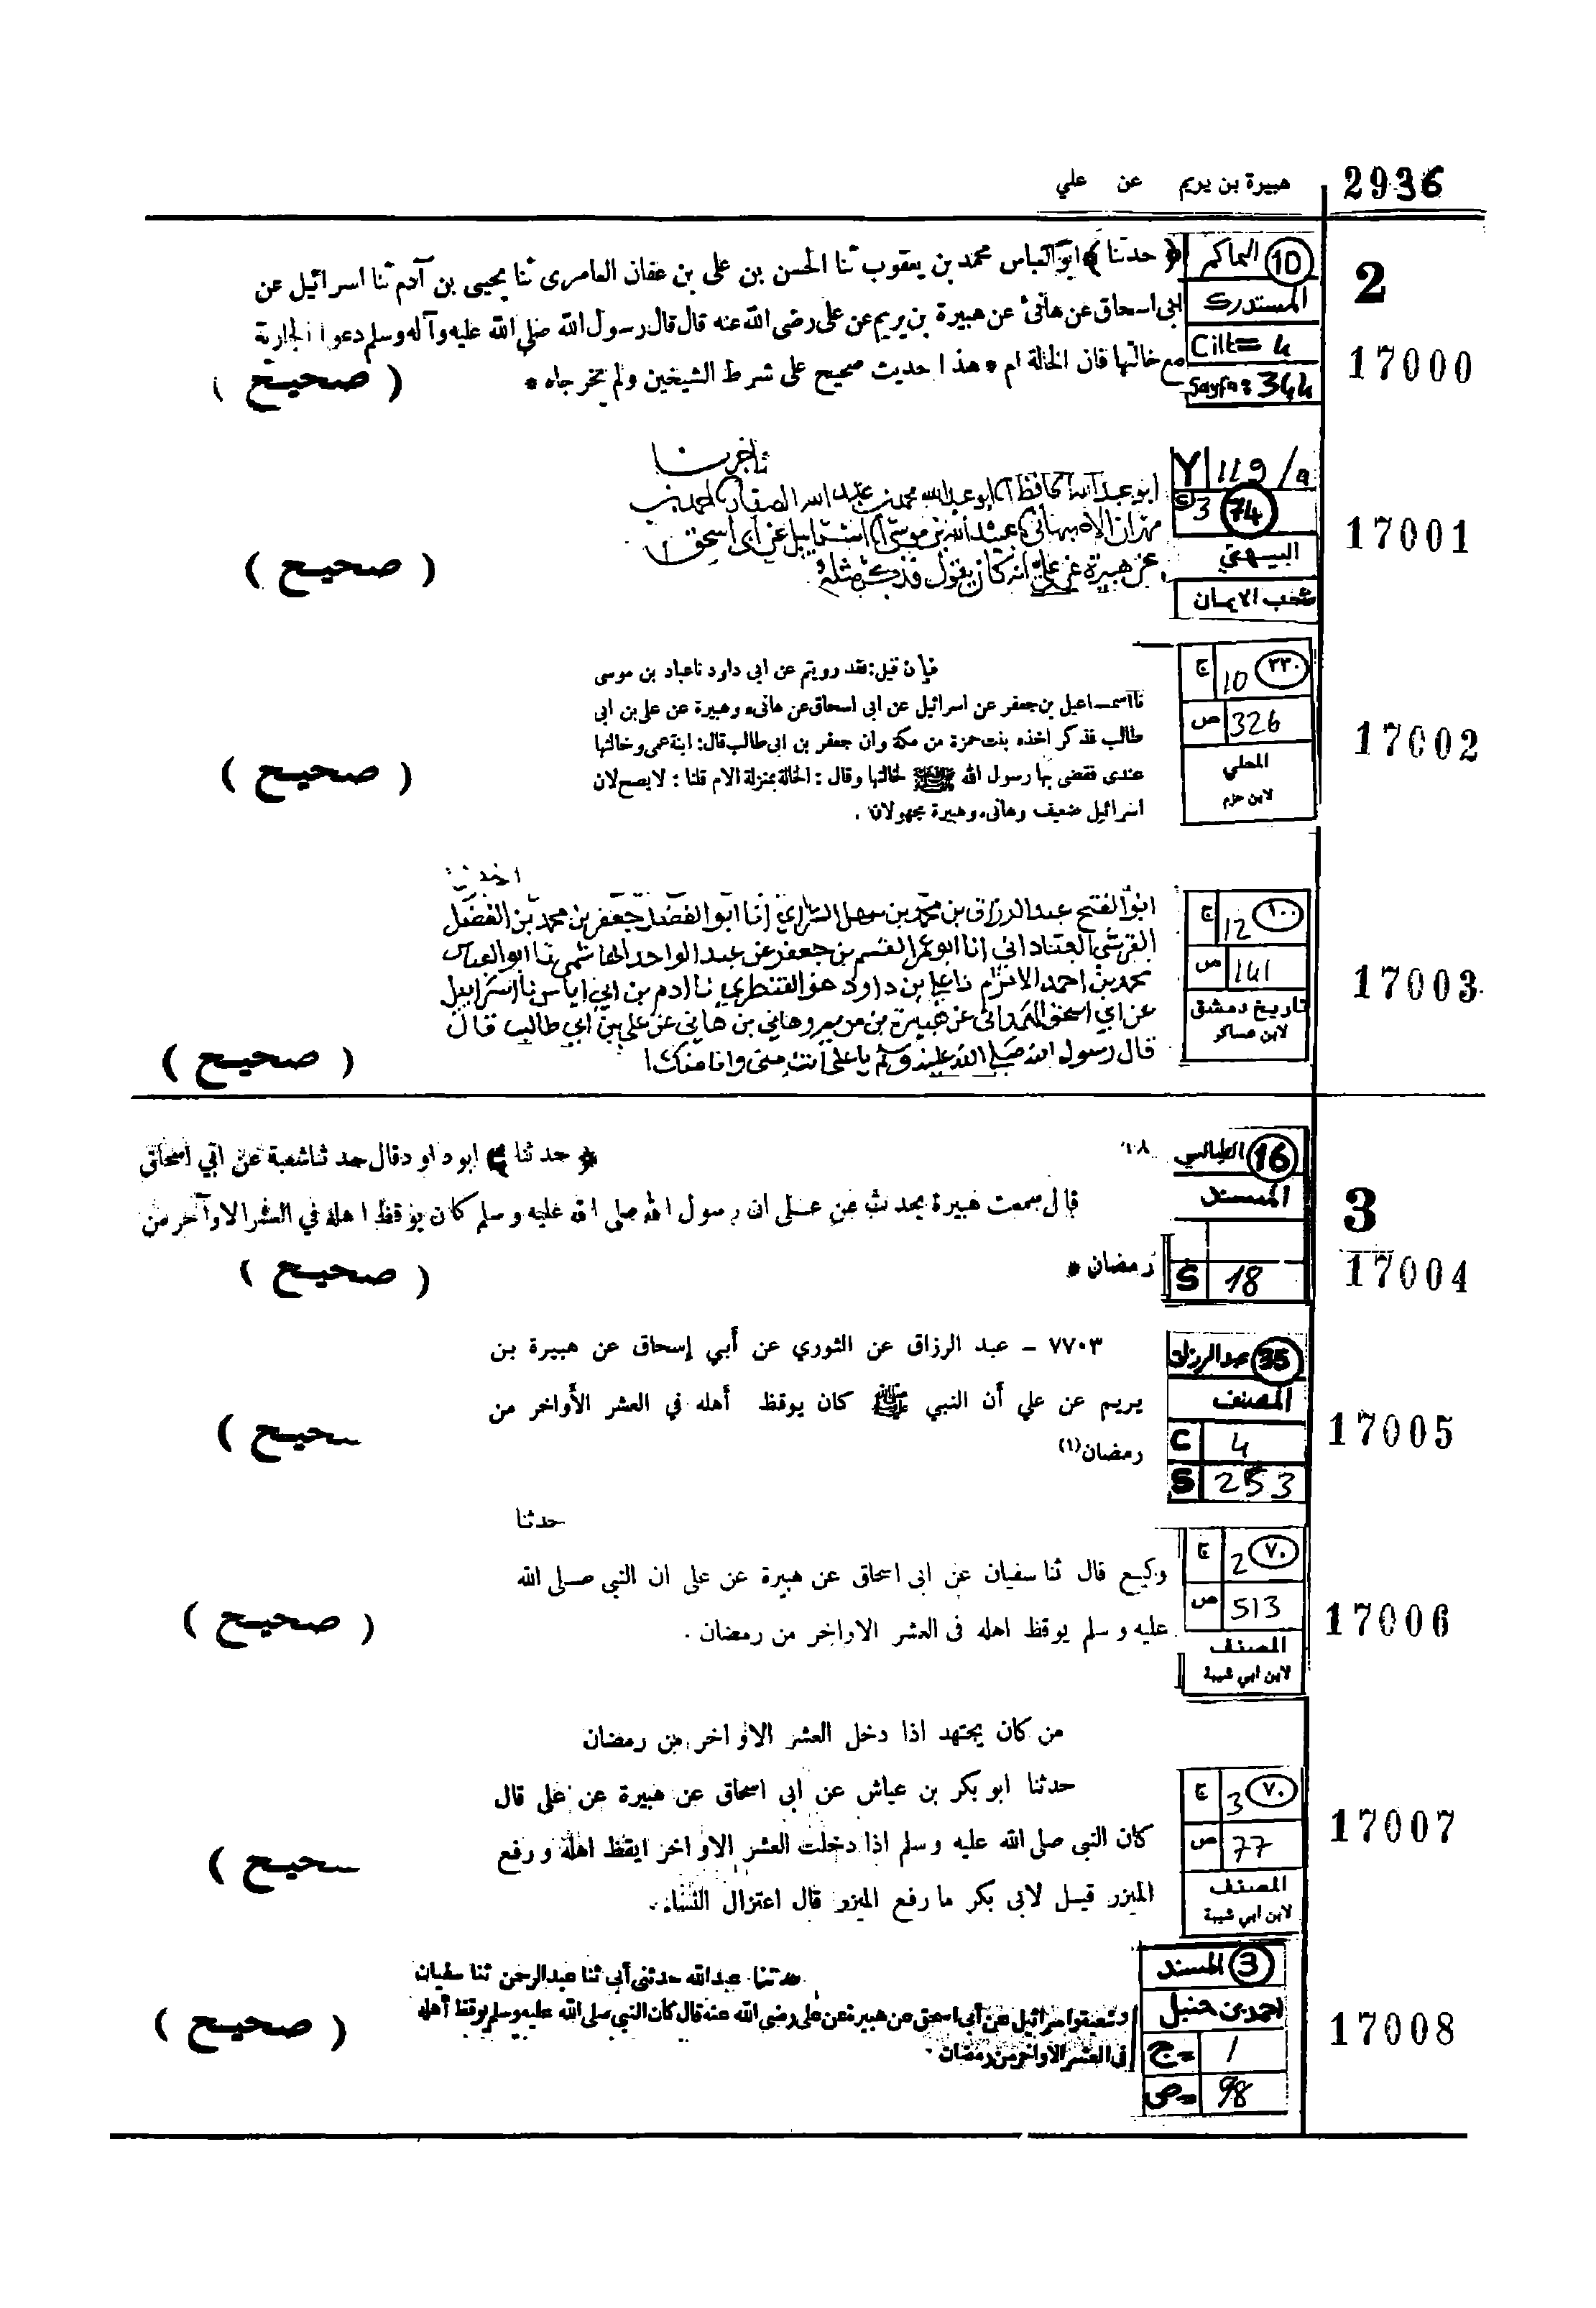 2936
هبيرة بن يريم عن علي
2
17000
10 الحاكم
المستدرك
Cilt= 4
Sayfa: 344
﴿ حدثنا ﴾ ابو العباس محمد بن يعقوب ثنا الحسن بن على بن عفان العامرى ثنا يحيى بن آدم ثنا اسرائيل عن
ابى اسحاق عن هانئ عن هبيرة بن يريم عن على رضى الله عنه قال قال رسول الله صلى الله عليه وآله وسلم دعوا الجارية
مع خالتها فان الخالة ام * هذا حديث صحيح على شرط الشيخين ولم يخرجاه *
( صحيح )
17001
Y 119/a
3 74
البيهقي
شعب الايمان
اخبرنا
ابو عبد الله الحافظ ابو عبد الله محمد بن عبد الله الصفار احمد بن
مهران الاصبهاني عبيد الله بن موسى اسرائيل عن ابي اسحق
عن هبيرة عن علي انه كان يقول فذكر مثله
( صحيح )
17002
٢٣٠
ج 10
ص 326
المحلي
لابن حزم
فإن قيل: فقد رويتم عن ابى داود نا عباد بن موسى
نا اسماعيل بن جعفر عن اسرائيل عن ابى اسحاق عن هانىء وهبيرة عن على بن ابى
طالب فذكر اخذه بنت حمزة من مكة وان جعفر بن ابى طالب قال: ابنة عمى وخالتها
عندى فقضى بها رسول الله ﷺ لخالتها وقال: الخالة بمنزلة الام قلنا: لا يصح لان
اسرائيل ضعيف وهانىء وهبيرة مجهولان.
( صحيح )
17003
١٠٠
ج 12
ص 141
تاريخ دمشق
لابن عساكر
اخبرنا
ابو الفتح عبد الرزاق بن محمد بن سهل الشرابي انا ابو الفضل جعفر بن محمد بن الفضل
القرشي العباداني انا ابو عمر القسم بن جعفر بن عبد الواحد الهاشمي نا ابو العباس
محمد بن احمد الاثرم نا علي بن داود هو القنطري نا ادم بن ابي اياس نا اسرائيل
عن ابي اسحق الهمداني عن هبيرة بن مريم وهاني بن هاني عن علي بن ابي طالب قال
قال رسول الله صلى الله عليه وسلم يا علي انت مني وانا منك
( صحيح )
3
17004
16 الطيالسي
المسند
S 18
١٠٨
﴿ حدثنا ﴾ ابو داود قال حدثنا شعبة عن ابي اسحاق
قال سمعت هبيرة يحدث عن علي ان رسول الله صلى الله عليه وسلم كان يوقظ اهله في العشر الاواخر من
رمضان *
( صحيح )
17005
35 عبد الرزاق
المصنف
C 4
S 253
٧٧٠٣ – عبد الرزاق عن الثوري عن أبي إسحاق عن هبيرة بن
يريم عن علي أن النبي ﷺ كان يوقظ أهله في العشر الأواخر من
رمضان(١)
حيح )
17006
٧٠
ج 2
ص 513
المصنف
لابن ابي شيبة
حدثنا
وكيع قال ثنا سفيان عن ابى اسحاق عن هبيرة عن على ان النبي صلى الله
عليه وسلم يوقظ اهله فى العشر الاواخر من رمضان .
( صحيح )
17007
٧٠
ج 3
ص 77
المصنف
لابن ابي شيبة
من كان يجتهد اذا دخل العشر الاواخر من رمضان
حدثنا ابو بكر بن عياش عن ابى اسحاق عن هبيرة عن على قال
كان النبى صلى الله عليه وسلم اذا دخلت العشر الاواخر ايقظ اهله و رفع
الميزر قيل لابى بكر ما رفع الميزر قال اعتزال النساء .
حيح )
17008
3 المسند
احمد بن حنبل
ج= 1
ص= 98
حدثنا عبد الله حدثنى أبى ثنا عبد الرحمن ثنا سفيان
وشعبة واسرائيل عن أبى اسحق عن هبيرة عن على رضى الله عنه قال كان النبى صلى الله عليه وسلم يوقظ أهله
فى العشر الاواخر من رمضان
( صحيح )